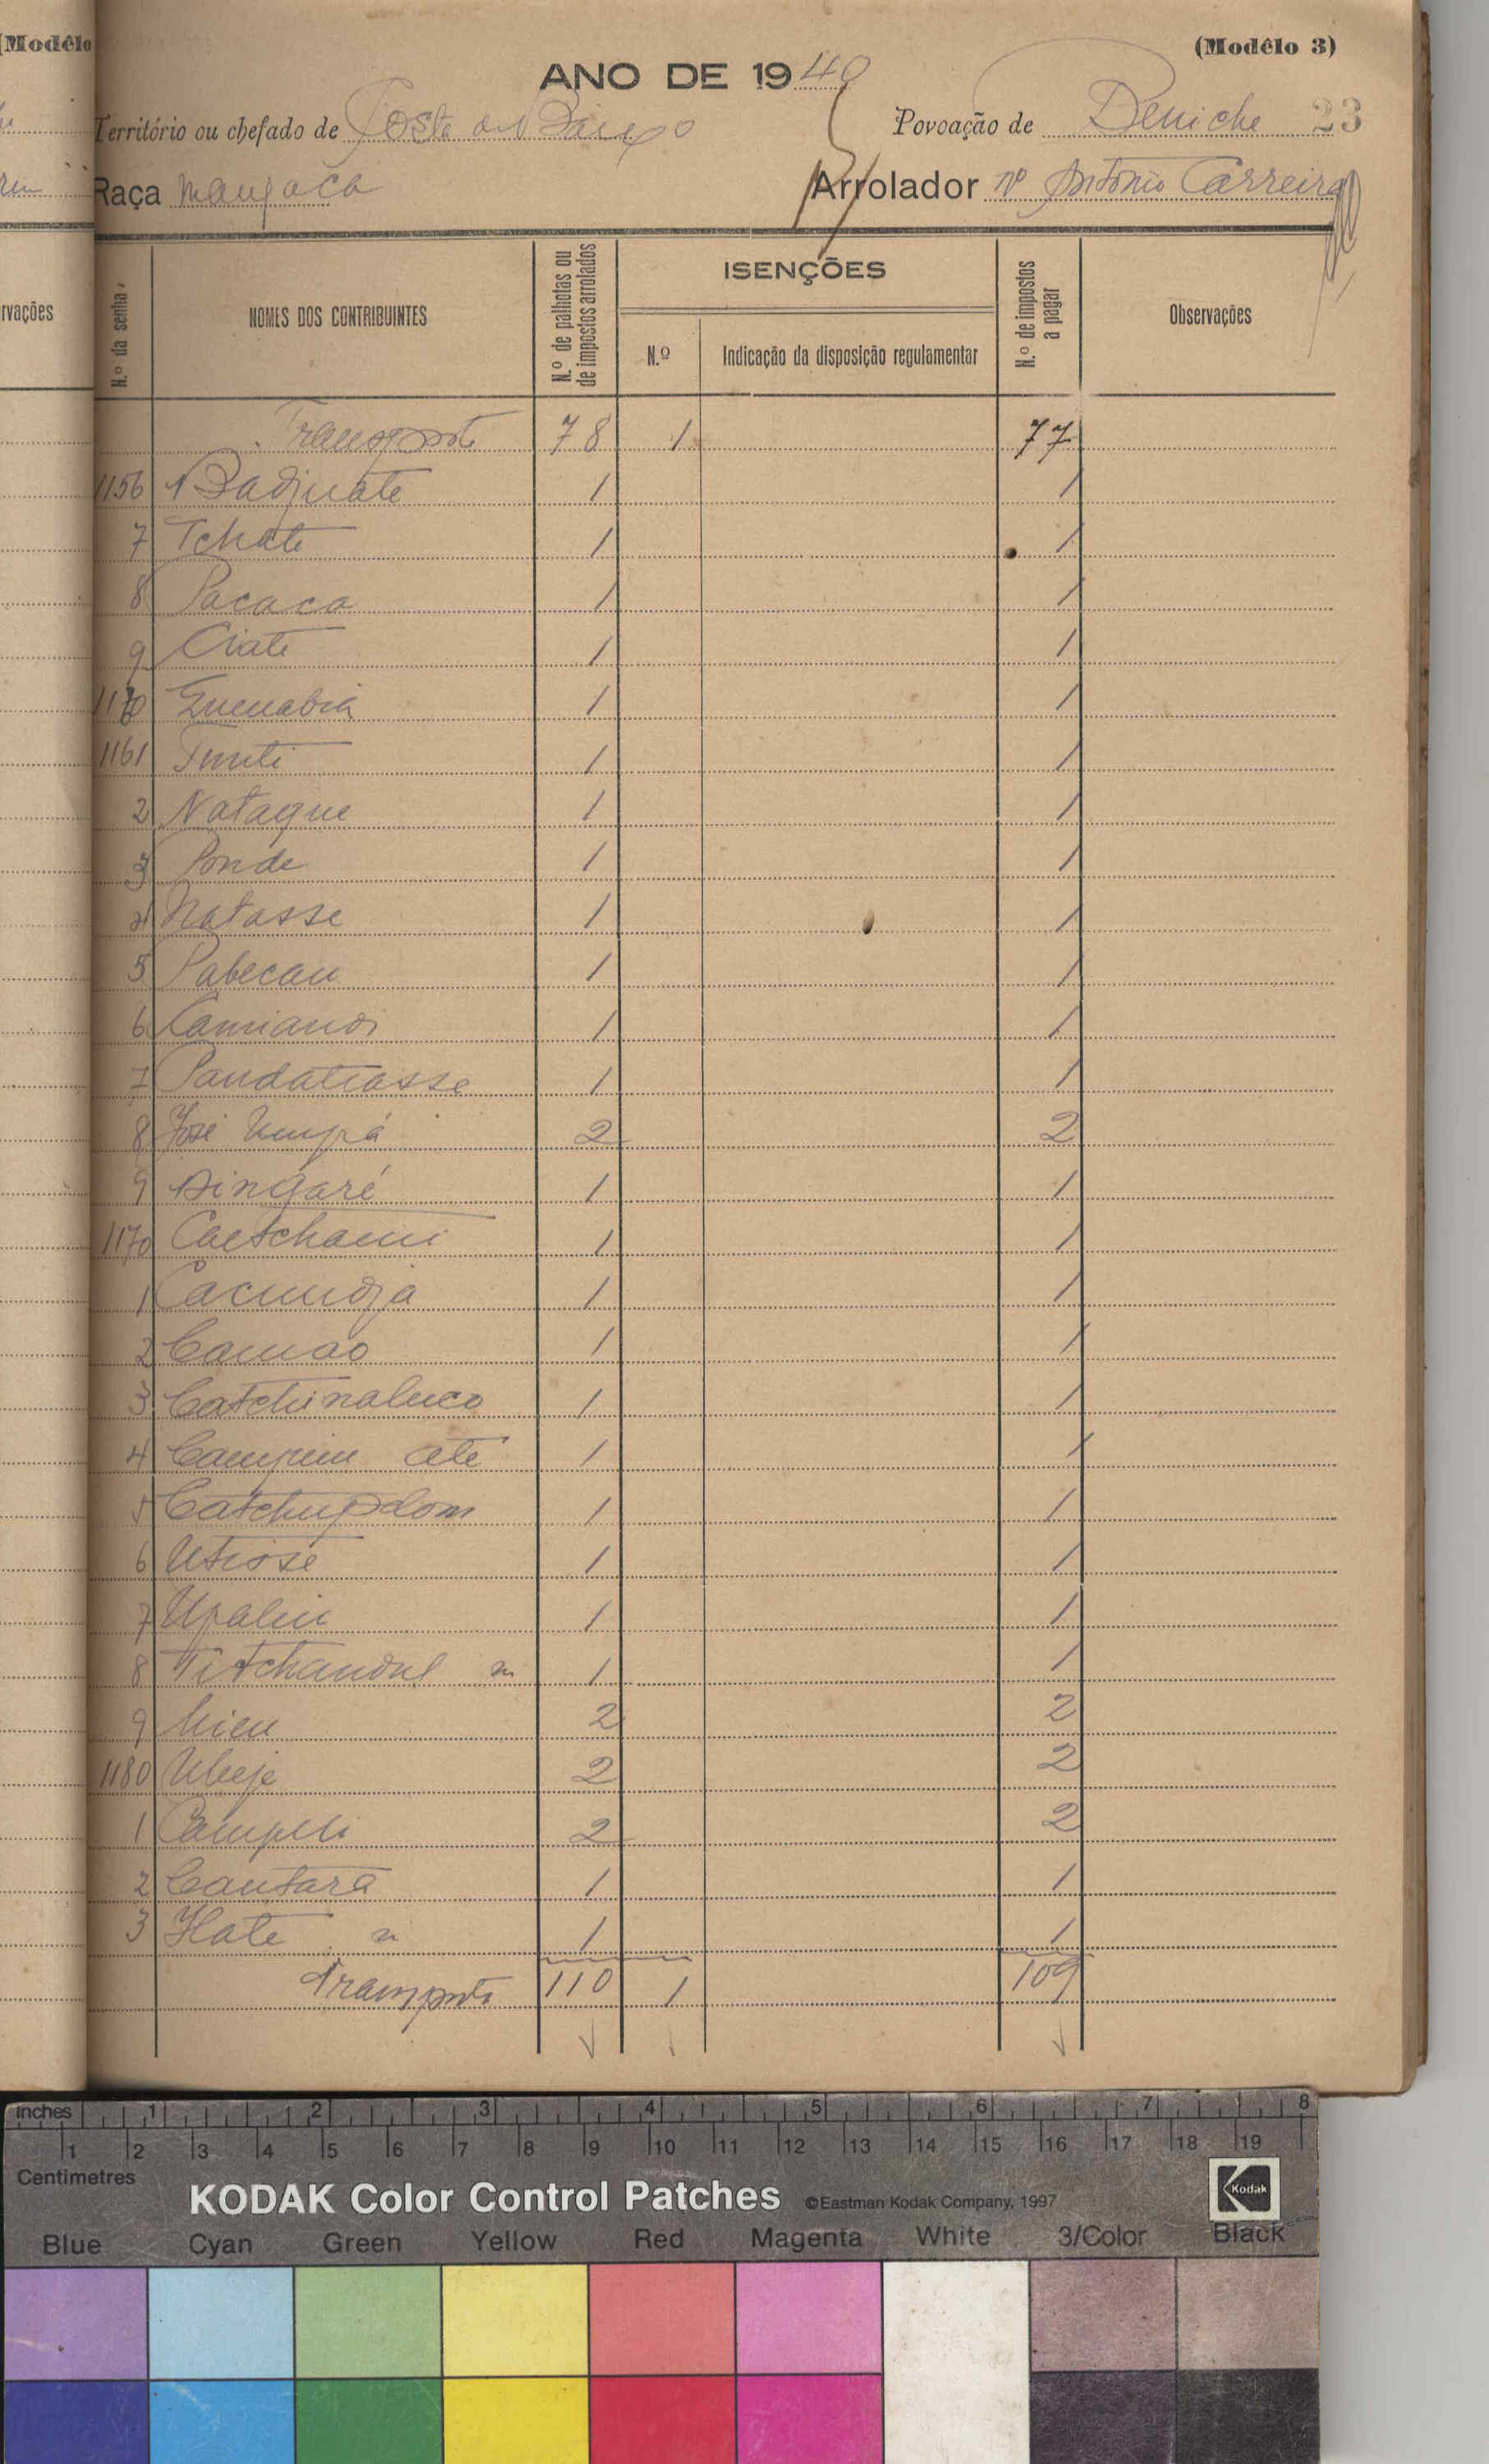 (Modêlo
(Modêlo 3)
ANO DE 1940
Território ou chefado de Costa
Povoação de Peniche 23
Raça Manjaca
Arrolador António Carreira
rvações
N.º da senha
NOMES DOS CONTRIBUINTES
N.º de palhotas ou de impostos arrolados
ISENÇÕES
N.º
Indicação da disposição regulamentar
N.º de impostos a pagar
Observações
Transporte 78 1 77
1156 Badjuate 1 1
7 Tchate 1 1
8 Pacaca 1 1
9 Ciate 1 1
1 1
1161 1 1
2 Nataque 1 1
3 Ponde 1 1
4 Natasse 1 1
5 Pabecau 1 1
6 Camiandi 1 1
7 Pandatiasse 1 1
8 José Umpá 2 2
9 Dingaré 1 1
1170 Caetchami 1 1
1 Cacundja 1 1
2 1 1
3 Catchinaluco 1 1
4 Campim até 1 1
5 1 1
6 Utiosé 1 1
7 Upalin 1 1
8 Titchandul 1 1
9 2 2
1180 2 2
1 Campeli 2 2
2 Cantará 1 1
3 Hate 1 1
Transporte 110 1 109
inches 1 2 3 4 5 6 7 8
1 2 3 4 5 6 7 8 9 10 11 12 13 14 15 16 17 18 19
Centimetres
KODAK Color Control Patches ©Eastman Kodak Company, 1997
Kodak
Blue Cyan Green Yellow Red Magenta White 3/Color Black